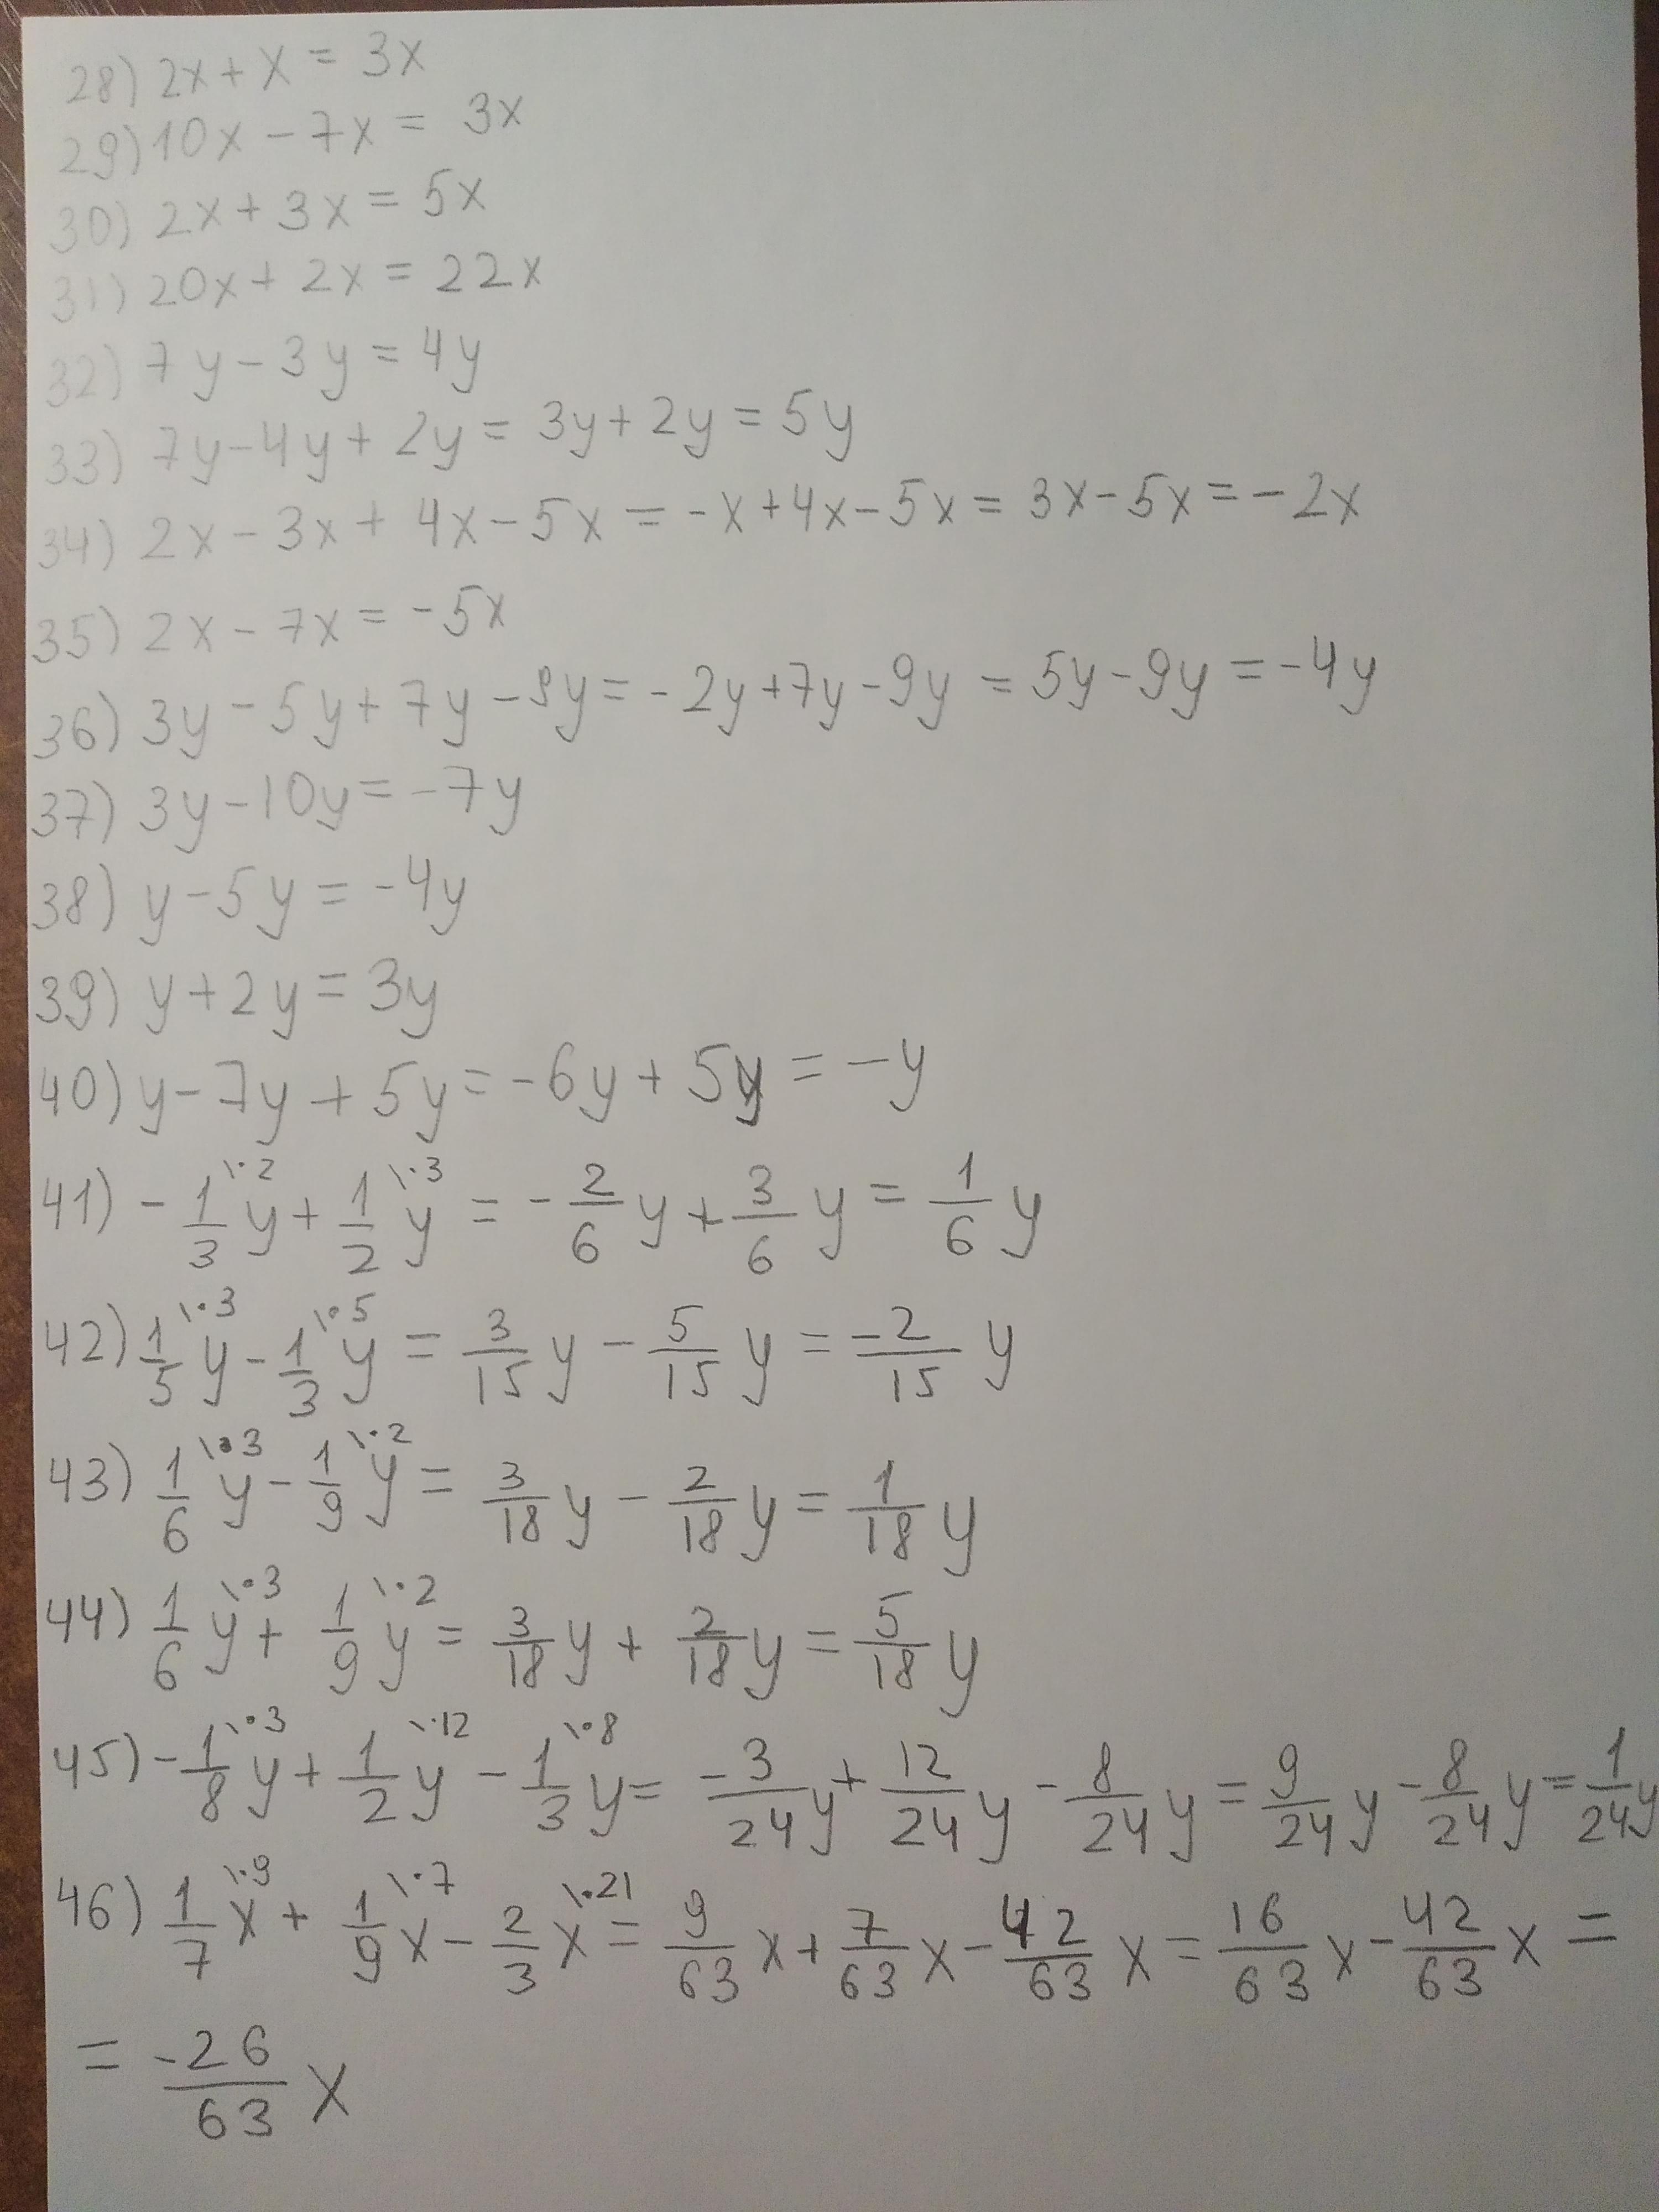 28) 2x + x = 3x
29) 10x - 7x = 3x
30) 2x + 3x = 5x
31) 20x + 2x = 22x
32) 7y - 3y = 4y
33) 7y - 4y + 2y = 3y + 2y = 5y
34) 2x - 3x + 4x - 5x = -x + 4x - 5x = 3x - 5x = -2x
35) 2x - 7x = -5x
36) 3y - 5y + 7y - 9y = -2y + 7y - 9y = 5y - 9y = -4y
37) 3y - 10y = -7y
38) y - 5y = -4y
39) y + 2y = 3y
40) y - 7y + 5y = -6y + 5y = -y
41) - 1/3 y \·2 + 1/2 y \·3 = - 2/6 y + 3/6 y = 1/6 y
42) 1/5 y \·3 - 1/3 y \·5 = 3/15 y - 5/15 y = -2/15 y
43) 1/6 y \·3 - 1/9 y \·2 = 3/18 y - 2/18 y = 1/18 y
44) 1/6 y \·3 + 1/9 y \·2 = 3/18 y + 2/18 y = 5/18 y
45) - 1/8 y \·3 + 1/2 y \·12 - 1/3 y \·8 = -3/24 y + 12/24 y - 8/24 y = 9/24 y - 8/24 y = 1/24 y
46) 1/7 x \·9 + 1/9 x \·7 - 2/3 x \·21 = 9/63 x + 7/63 x - 42/63 x = 16/63 x - 42/63 x =
= -26/63 x